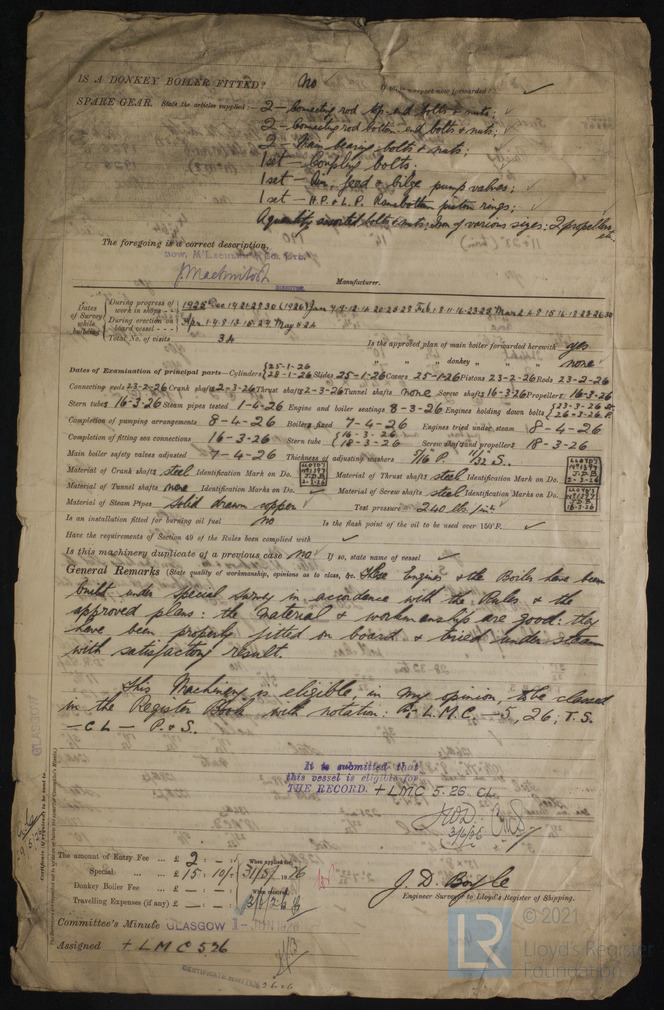 IS A DONKEY BOILER FITTED? no If so, is a report now forwarded? ✓
SPARE GEAR. State the articles supplied:— 2 — Connecting rod top end bolts & nuts; ✓
2 — Connecting rod bottom end bolts & nuts; ✓
2 — Main bearing bolts & nuts;
1 set — Coupling bolts.
1 set — Air, feed & bilge pump valves; ✓
1 set — H.P. & L.P. Ramsbottom piston rings; ✓
A quantity assorted bolts & nuts: Iron of various sizes: 2 propellers,
The foregoing is a correct description,
J. MacKintosh Manufacturer.
DIRECTOR.
Dates of Survey while building
During progress of work in shops - - 1925 Dec 14 21 28 30 (1926) Jan 4 7 12 14 20 25 28 Feb 1 8 11 16 23 25 Mar 2 4 8 15 16 18 23 26 30
During erection on board vessel - - - Apr 1 4 8 13 15 29 May 4 24
Total No. of visits 34
Is the approved plan of main boiler forwarded herewith yes
" " " donkey " " " none
Dates of Examination of principal parts—Cylinders 25-1-26 28-1-26 Slides 25-1-26 Covers 25-1-26 Pistons 23-2-26 Rods 23-2-26
Connecting rods 23-2-26 Crank shaft 2-3-26 Thrust shaft 2-3-26 Tunnel shafts none Screw shaft 16-3-26 Propeller 16-3-26
Stern tubes 16-3-26 Steam pipes tested 1-4-26 Engine and boiler seatings 8-3-26 Engines holding down bolts 23-3-26 26-3-26
Completion of pumping arrangements 8-4-26 Boilers fixed 7-4-26 Engines tried under steam 8-4-26
Completion of fitting sea connections 16-3-26 Stern tube 16-3-26 18-3-26 Screw shaft and propeller 18-3-26
Main boiler safety valves adjusted 7-4-26 Thickness of adjusting washers 5/16 P. 11/32 S.
Material of Crank shaft steel Identification Mark on Do. Material of Thrust shaft steel Identification Mark on Do.
Material of Tunnel shafts none Identification Marks on Do. ✓ Material of Screw shafts steel Identification Marks on Do.
Material of Steam Pipes solid drawn copper ✓ Test pressure 240 lb/in²
Is an installation fitted for burning oil fuel no Is the flash point of the oil to be used over 150°F. ✓
Have the requirements of Section 49 of the Rules been complied with ✓
Is this machinery duplicate of a previous case no ✓ If so, state name of vessel ✓
General Remarks (State quality of workmanship, opinions as to class, &c. These Engines & the Boiler have been
built under special survey in accordance with the Rules & the
approved plans: the material & workmanship are good: they
have been properly fitted on board & tried under steam
with satisfactory result.
This Machinery is eligible, in my opinion, to be classed
in the Register Book with notation: L.M.C. — 5, 26; T.S.
— C L — P. & S.
It is submitted that
this vessel is eligible for
THE RECORD. + LMC 5.26. CL.
3/6/26
The amount of Entry Fee ... £ 2 : - : When applied for,
Special ... £ 15 : 10/- : 31/5/1926
Donkey Boiler Fee ... £ - : - : When received,
Travelling Expenses (if any) £ - : - :
J. D. Boyle
Engineer Surveyor to Lloyd's Register of Shipping.
Committee's Minute GLASGOW 1 - JUN 1926
Assigned + L M C 5.26
CERTIFICATE WRITTEN
© 2021
LR Lloyd's Register
Foundation